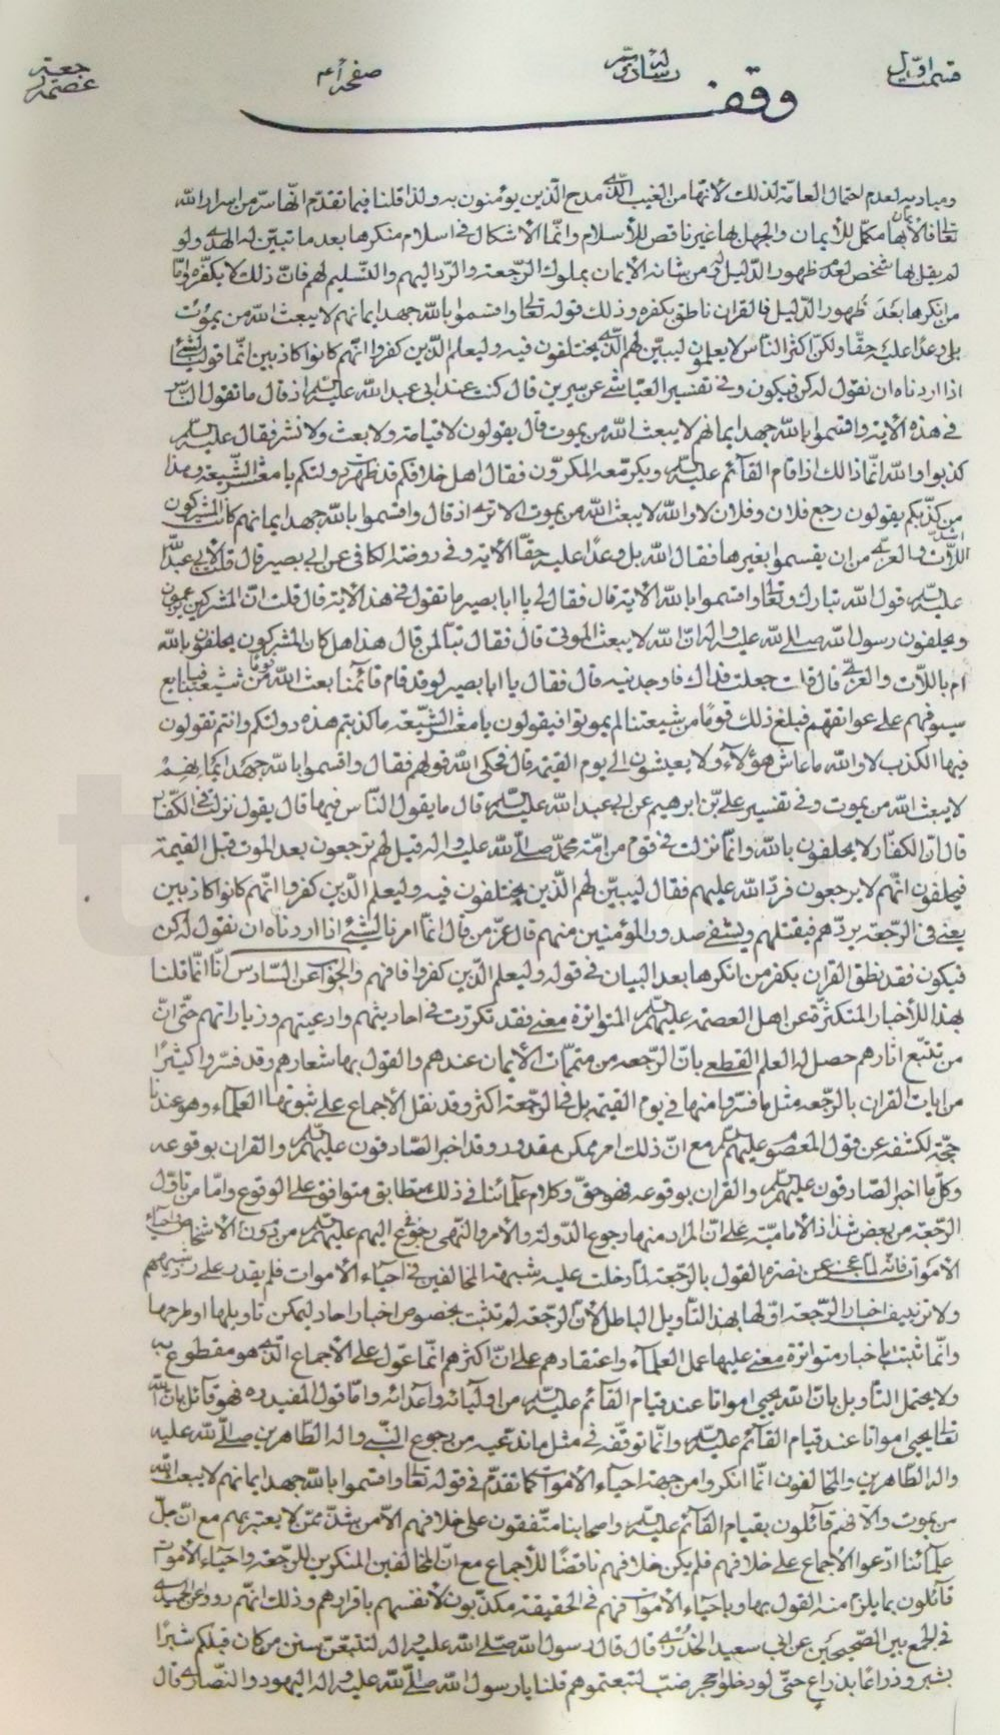 قسمت اوّل
رسالۀ سادسه
صفحه ۴۱
جعتیه عصمتیه
وقف
ومباديه لعدم احتمال العامّة لذلك لانّها من الغيب الّذى مدح الّذين يؤمنون به ولذا قلنا فيما تقدّم انّها سرّ من اسرار الله
تعالى فالأيمان بها مكمّل للأيمان والجهل بها غير ناقص للأسلام وانّما الأشكال فى اسلام منكرها بعد ما تبيّن له الهدى ولو
لم يقل بها شخص لعدم ظهور الدّليل له ومن شانه الايمان بملوك الرّجعة والرّد اليهم والتّسليم لهم فانّ ذلك لا يكفّره وامّا
من انكرها بعد ظهور الدّليل فالقران ناطق بكفره وذلك قوله تعالى واقسموا بالله جهد ايمانهم لا يبعث الله من يموت
بلى وعدًا عليه حقّا ولكنّ اكثر النّاس لا يعلمون ليبيّن لهم الّذى يختلفون فيه وليعلم الّذين كفروا انّهم كانوا كاذبين انّما قولنا لشئ
اذا اردناه ان نقول له كن فيكون وفى تفسير العيّاشى عن سيرين قال كنت عند ابى عبد الله عليه السلم اذ قال ما تقول النّاس
فى هذه الأية واقسموا بالله جهد ايمانهم لا يبعث الله من يموت قال يقولون لا قيامة ولا بعث ولا نشر فقال عليه السلم
كذبوا والله انّما ذلك اذا قام القآئم عليه السلم ويكرّ معه المكرّون فقال اهل خلافكم قد ظهرت دولتكم يا معشر الشّيعة وهذا
من كذبكم يقولون رجع فلان وفلان لا والله لا يبعث الله من يموت الا ترى اذ قال واقسموا بالله جهد ايمانهم كانت المشركون اشدّ
اللاّت والعزّى من ان يقسموا بغيرها فقال الله بلى وعدًا عليه حقّا الأية وفى روضة الكافى عن ابى بصير قال قلت لأبى عبد الله
عليه السلم قول الله تبارك وتعالى واقسموا بالله الأية قال فقال لى يا ابا بصير ما تقول فى هذه الأية قال قلت انّ المشركين يزعمون
ويحلفون رسول الله صلى الله عليه واله انّ الله لا يبعث الموتى قال فقال تبّا لمن قال هذا هل كان المشركون يحلفون بالله
ام باللاّت والعزّى قال قلت جعلت فداك فاوجدنيه قال فقال يا ابا بصير لو قد قام قائمنا بعث الله قومًا من شيعتنا قبايع
سيوفهم على عواتقهم فبلغ ذلك قومًا من شيعتنا لم يموتوا فيقولون يا معشر الشّيعة ما كذبتم هذه دولتكم وانتم تقولون
فيها الكذب لا والله ما عاش هؤلآء ولا يعيشون الى يوم القيمة قال فحكى الله قولهم فقال واقسموا بالله جهد ايمانهم
لا يبعث الله من يموت وفى تفسير علىّ بن ابرهيم عن ابى عبد الله عليه السلم قال ما يقول النّاس فيها قال يقول نزلت فى الكفّار
قال انّ الكفّار لا يحلفون بالله وانّما نزلت فى قوم من امّة محمّد صلى الله عليه واله قيل لهم ترجعون بعد الموت قبل القيمة
فيحلفون انّهم لا يرجعون فردّ الله عليهم فقال ليبيّن لهم الّذين يختلفون فيه وليعلم الّذين كفروا انّهم كانوا كاذبين
يعنى فى الرّجعة يردّهم فيقتلهم ويشفى صدور المؤمنين منهم قال عزّ من قال انّما امرنا لشئ اذا اردناه ان نقول له كن
فيكون فقد نطق القران بكفر من انكرها بعد البيان فى قوله وليعلم الّذين كفروا فافهم والجواب عن السّادس انّا انّما قلنا
بهذا للأخبار المتكثرّة عن اهل العصمة عليهم السلم المتواترة معنى فقد تكرّرت فى احاديثهم وادعيتهم وزياراتهم حتّى انّ
من تتبّع اثارهم حصل له العلم القطعى بانّ الرّجعة من متمّمات الأيمان عندهم والقول بها شعارهم وقد فسّروا كثيرًا
من ايات القران بالرّجعة مثل ما فسّروا منها فى يوم القيمة بل فى الرّجعة اكثر وقد نقل الأجماع على ثبوتها العلمآء وهو عندنا
حجّة لكشفه عن قول المعصوم عليهم السلم مع انّ ذلك امر ممكن مقدور وقد اخبر الصّادقون عليهم السلم والقران بوقوعه
وكلّ ما اخبر الصّادقون عليهم السلم والقران بوقوعه فهو حقّ وكلام علمآئنا فى ذلك متطابق متوافق على الوقوع وامّا من تاوّل
الرّجعة من بعض شذاذ الأماميّة على انّ المراد منها رجوع الدّولة والأمر والنّهى رجوع اليهم عليهم السلم من دون الأشخاص واحياء
الأموات فانّه لمّا عجز عن نصرة القول بالرّجعة لمّا دخلت عليه شبهة المخالفين فى احيآء الأموات فلم يقدر على ردّ شبههم
ولا تزييف اخبار الرّجعة اوّلها بهذا التّأويل الباطل لأنّ الرّجعة لم تثبت بخصوص اخبار احاد ليمكن تاويلها او طرحها
وانّما ثبتت باخبار متواترة معنى عليها عمل العلمآء واعتقادهم على انّ اكثرهم انّما عوّل على الأجماع الّذى هو مقطوع به
ولا يحتمل التّأويل بانّ الله يحيى امواتا عند قيام القآئم عليه السلم من اوليائه واعدائه وامّا قول المفيد ره فهو قآئل بانّ الله
تعالى يحيى امواتا عند قيام القآئم عليه السلم وانّما توقّفه فى مثل ما ندّعيه من رجوع النّبى واله الطّاهرين صلى الله عليه
واله الطّاهرين والمخالفون انّما انكروا من جهة احيآء الأموات كما تقدّم فى قوله تعالى واقسموا بالله جهد ايمانهم لا يبعث الله
من يموت والاّ فهم قآئلون بقيام القآئم عليه السلم واصحابنا متّفقون على خلافهم الاّ من شذّ ممّن لا يعتبر بهم مع انّ جلّ
علمآئنا ادّعوا الأجماع على خلافهم فلم يكن خلافهم ناقضًا للأجماع مع انّ المخالفين المنكرين للرّجعة واحيآء الأموات
قآئلون بما يلزم منه القول بها وباحيآء الأموات فهم فى الحقيقة مكذّبون لأنفسهم باقرارهم وذلك انّهم رووا عن الحميدى
فى الجمع بين الصّحيحين عن ابى سعيد الخدرى قال قال رسول الله صلى الله عليه واله لتتبعنّ سنن من كان قبلكم شبرًا
بشبر وذراعًا بذراع حتّى لو دخلوا جحر ضبّ لتبعتموهم قلنا يا رسول الله صلى الله عليه واله اليهود والنّصارى قال